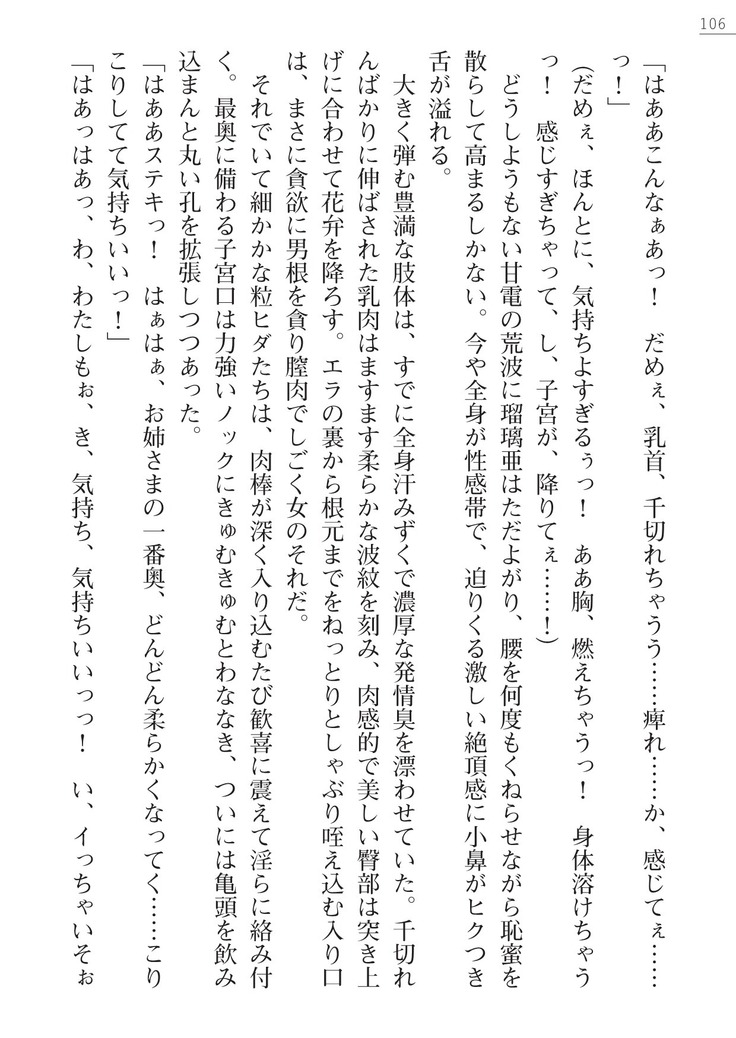 106
「はああこんなぁあっ！　だめぇ、乳首、千切れちゃうう……痺れ……か、感じてぇ……
っ！」
（だめぇ、ほんとに、気持ちよすぎるぅっ！　ああ胸、燃えちゃうっ！　身体溶けちゃう
っ！　感じすぎちゃって、し、子宮が、降りてぇ……！）
どうしようもない甘電の荒波に瑠璃亜はただよがり、腰を何度もくねらせながら恥蜜を
散らして高まるしかない。今や全身が性感帯で、迫りくる激しい絶頂感に小鼻がヒクつき
舌が溢れる。
大きく弾む豊満な肢体は、すでに全身汗みずくで濃厚な発情臭を漂わせていた。千切れ
んばかりに伸ばされた乳肉はますます柔らかな波紋を刻み、肉感的で美しい臀部は突き上
げに合わせて花弁を降ろす。エラの裏から根元までをねっとりとしゃぶり咥え込む入り口
は、まさに貪欲に男根を貪り膣肉でしごく女のそれだ。
それでいて細かかな粒ヒダたちは、肉棒が深く入り込むたび歓喜に震えて淫らに絡み付
く。最奥に備わる子宮口は力強いノックにきゅむきゅむとわななき、ついには亀頭を飲み
込まんと丸い孔を拡張しつつあった。
「はああステキっ！　はぁはぁ、お姉さまの一番奥、どんどん柔らかくなってく……こり
こりしてて気持ちいいっ！」
「はあっはあっ、わ、わたしもぉ、き、気持ち、気持ちいいっっ！　い、イっちゃいそぉ